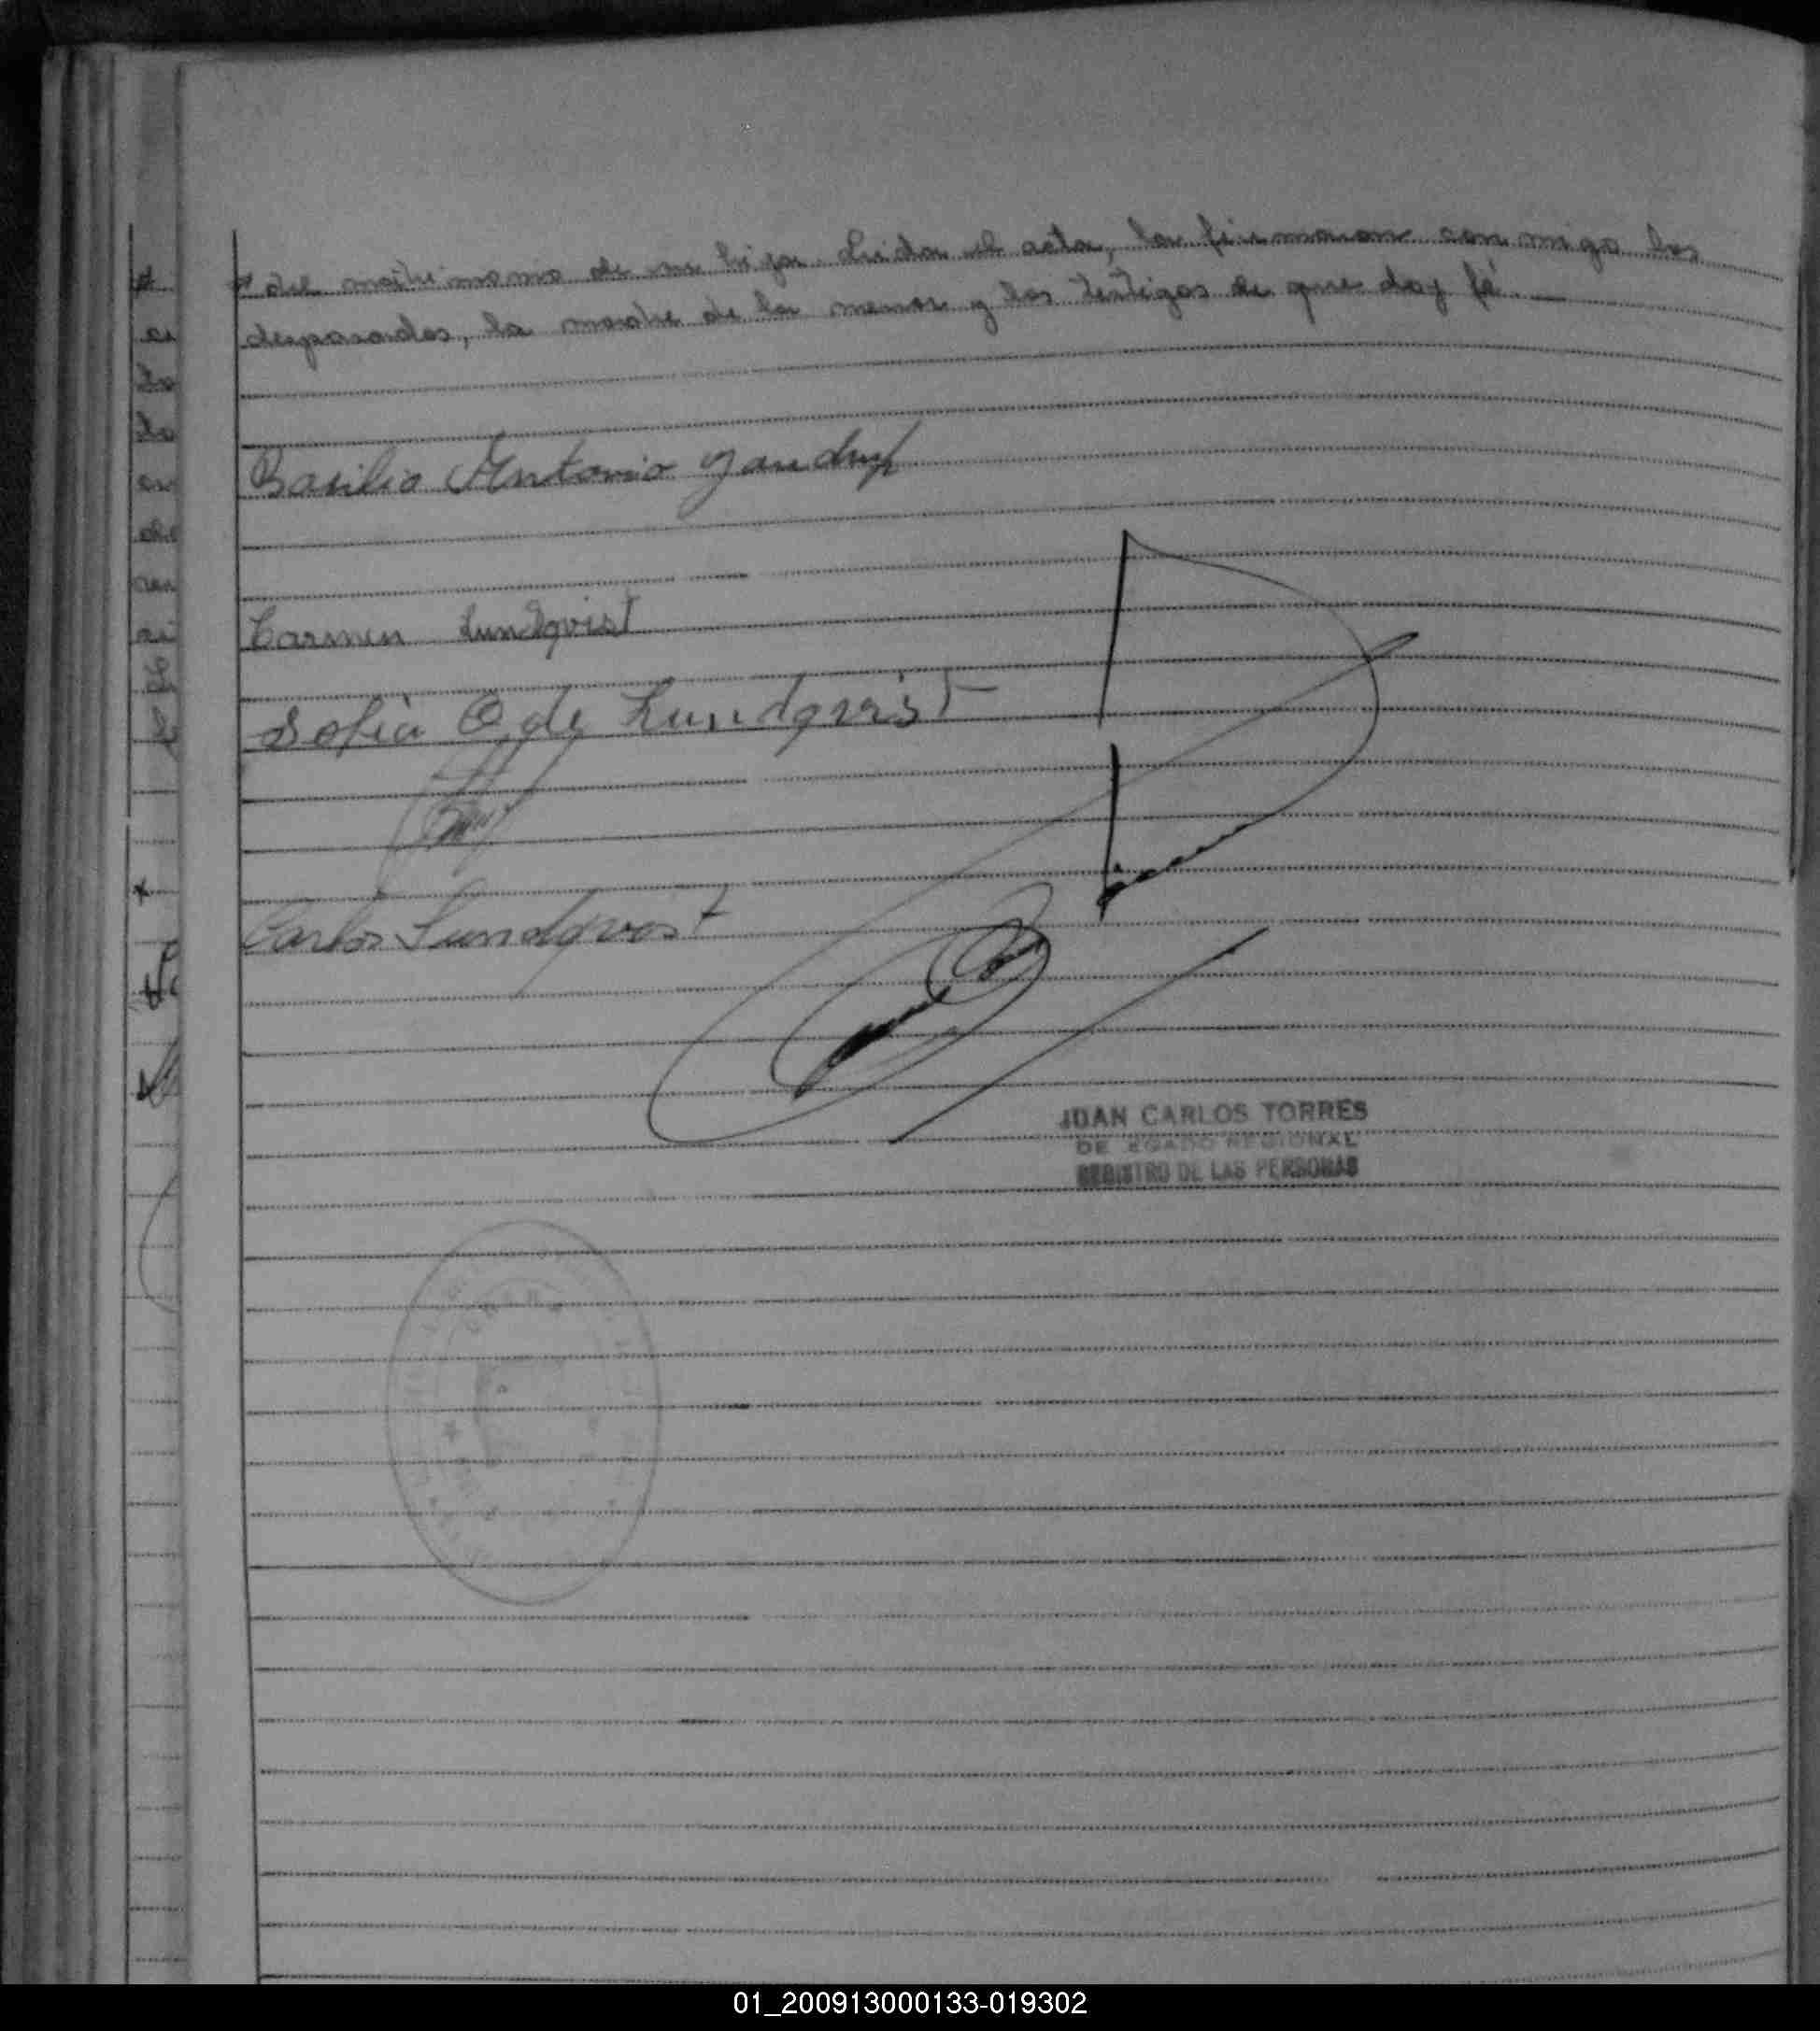 * del matrimonio de su hija. Leida el acta, la firmaron conmigo los
desposados, la madre de la menor y los testigos de que doy fé. —
Basilio Antonio
Carmen Lundqvist
Sofia O de Lundqvist
Carlos Lundqvist
JUAN CARLOS TORRES
DELEGADO REGIONAL
REGISTRO DE LAS PERSONAS
01_200913000133-019302